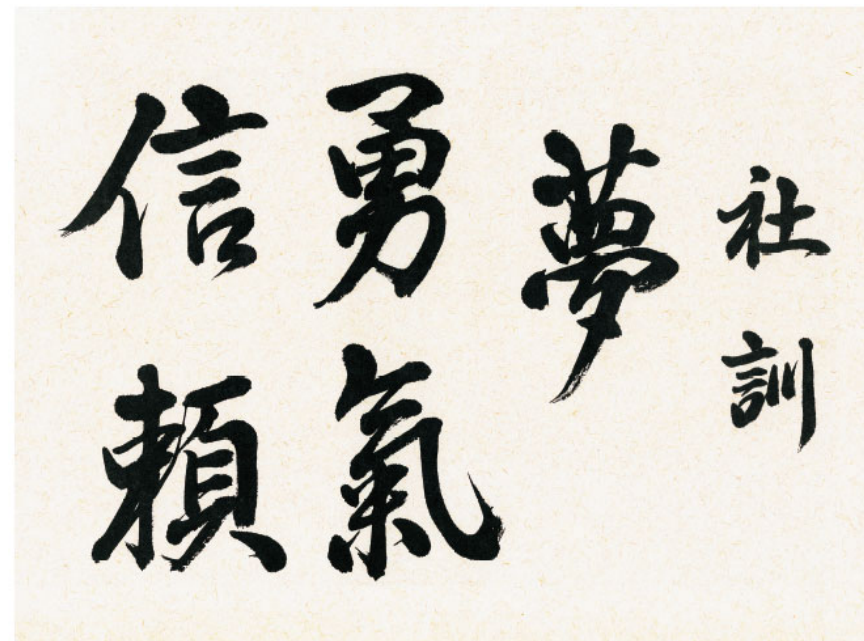 社訓
夢
勇氣
信賴